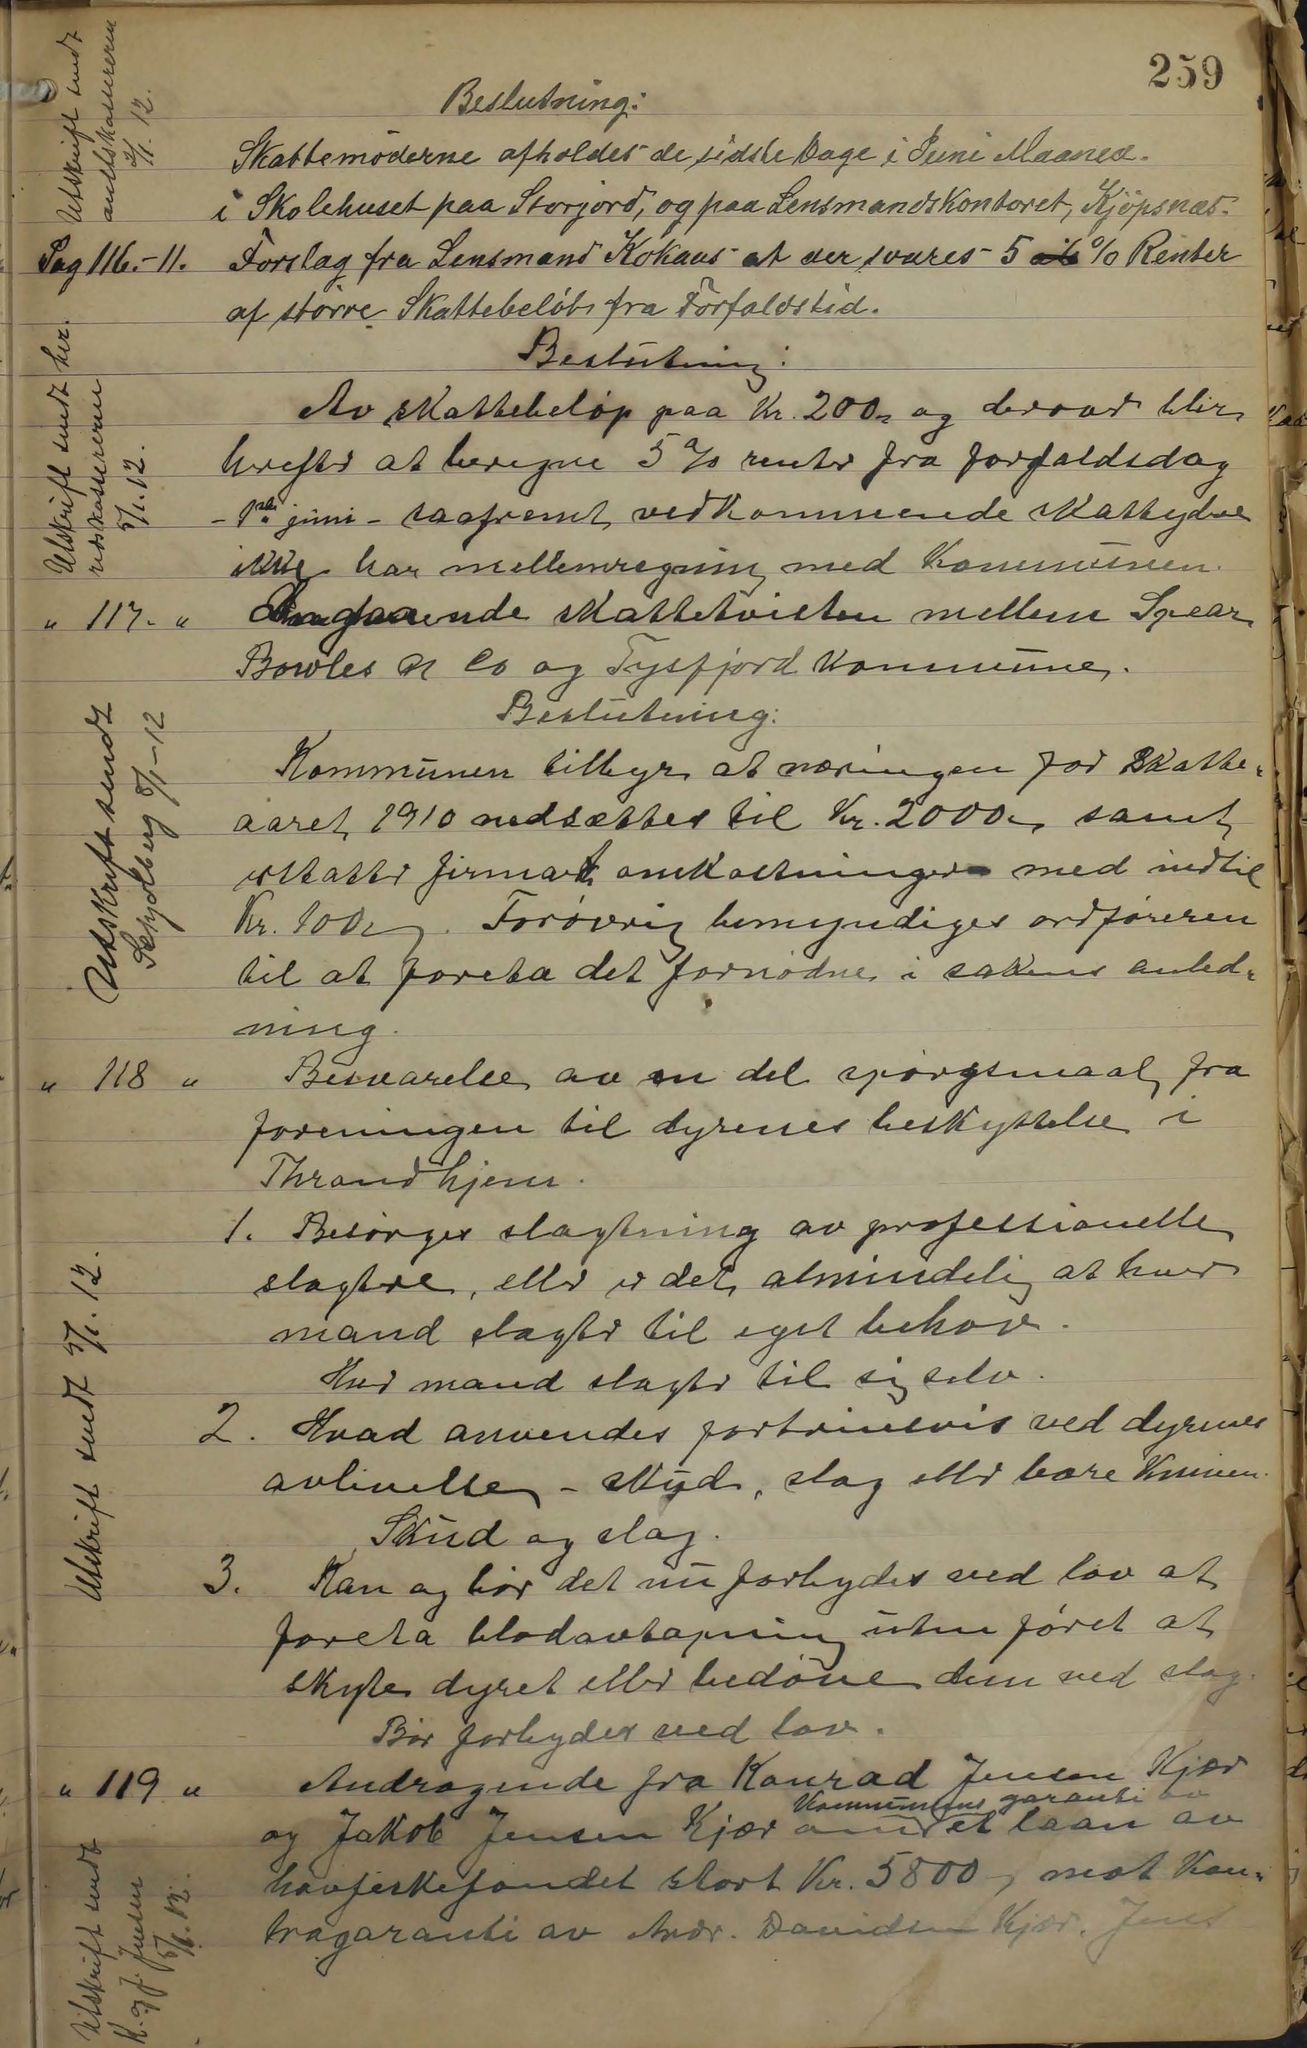 259
Beslutning:
Skattemöderne afholdes de sidste Dage i Juni Maaned.
i Skolehuset paa Storjord, og paa Lensmandskontoret, Kjöpsnæs.
Utskrift sendt
amtskassereren
5/1. 12.
Sag 116.-11. Forslag fra Lensmand Kokaas at der svares 5 % Renter
af större Skattebelöb fra Forfaldstid.
Beslutning:
Av skattebeløp paa Kr. 200,- og derover blir
herefter at beregne 5 % renter fra forfaldsdag
- 1ste juni - saafremt vedkommende skatteyder
ikke har mellemregning med kommunen.
Utskrift sendt her.
redskassereren
5/1. 12.
" 117. " Angaaende skattetvisten mellem Spear
Bowles & Co og Tysfjord kommune.
Beslutning:
Kommunen tilbyr at næringen for Skatte-
aaret 1910 nedsættes til Kr. 2000,- samt
erstatter firmaet omkostninger med indtil
Kr. 100,-. Forøvrig bemyndiges ordføreren
til at foreta det fornødne i sakens anled-
ning.
Utskrift sendt
Schjelberg 5/1-12
" 118 " Besvarelse av en del spørgsmaal fra
foreningen til dyrenes beskyttelse i
Throndhjem.
1. Besørges slagtning av professionelle
slagtere, eller er det almindelig at hver
mand slagter til eget behov.
Hver mand slagter til sig selv.
2. Hvad anvendes fortrinsvis ved dyrenes
avlivelse - skud, slag eller bare kniven.
Skud og slag.
3. Kan og bör det nu forbydes ved lov at
foreta blodavtapning uten føret at
skyte dyret eller bedöve dem ved slag.
Bör forbydes ved lov.
Utskrift sendt 5/1. 12.
" 119 " Andragende fra Konrad Jensen Kjær
kommunens garanti av
og Jakob Jensen Kjær et laan av
havfiskefondet stort Kr. 5800,- mot kon-
tragaranti av Andr. Davidsen Kjær. Jens
Utskrift sendt
K. og J. Jensen
5/1. 12.